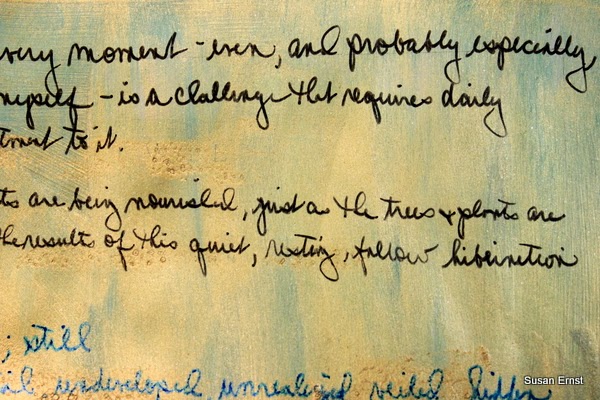 very moment - even, and probably especially,
myself - is a challenge that requires daily
tment to it.
ts are being nourished, just as the trees & plants are
the results of this quiet, resting, fallow hibernation
; still
undeveloped unrealized veiled hidden
Susan Ernst